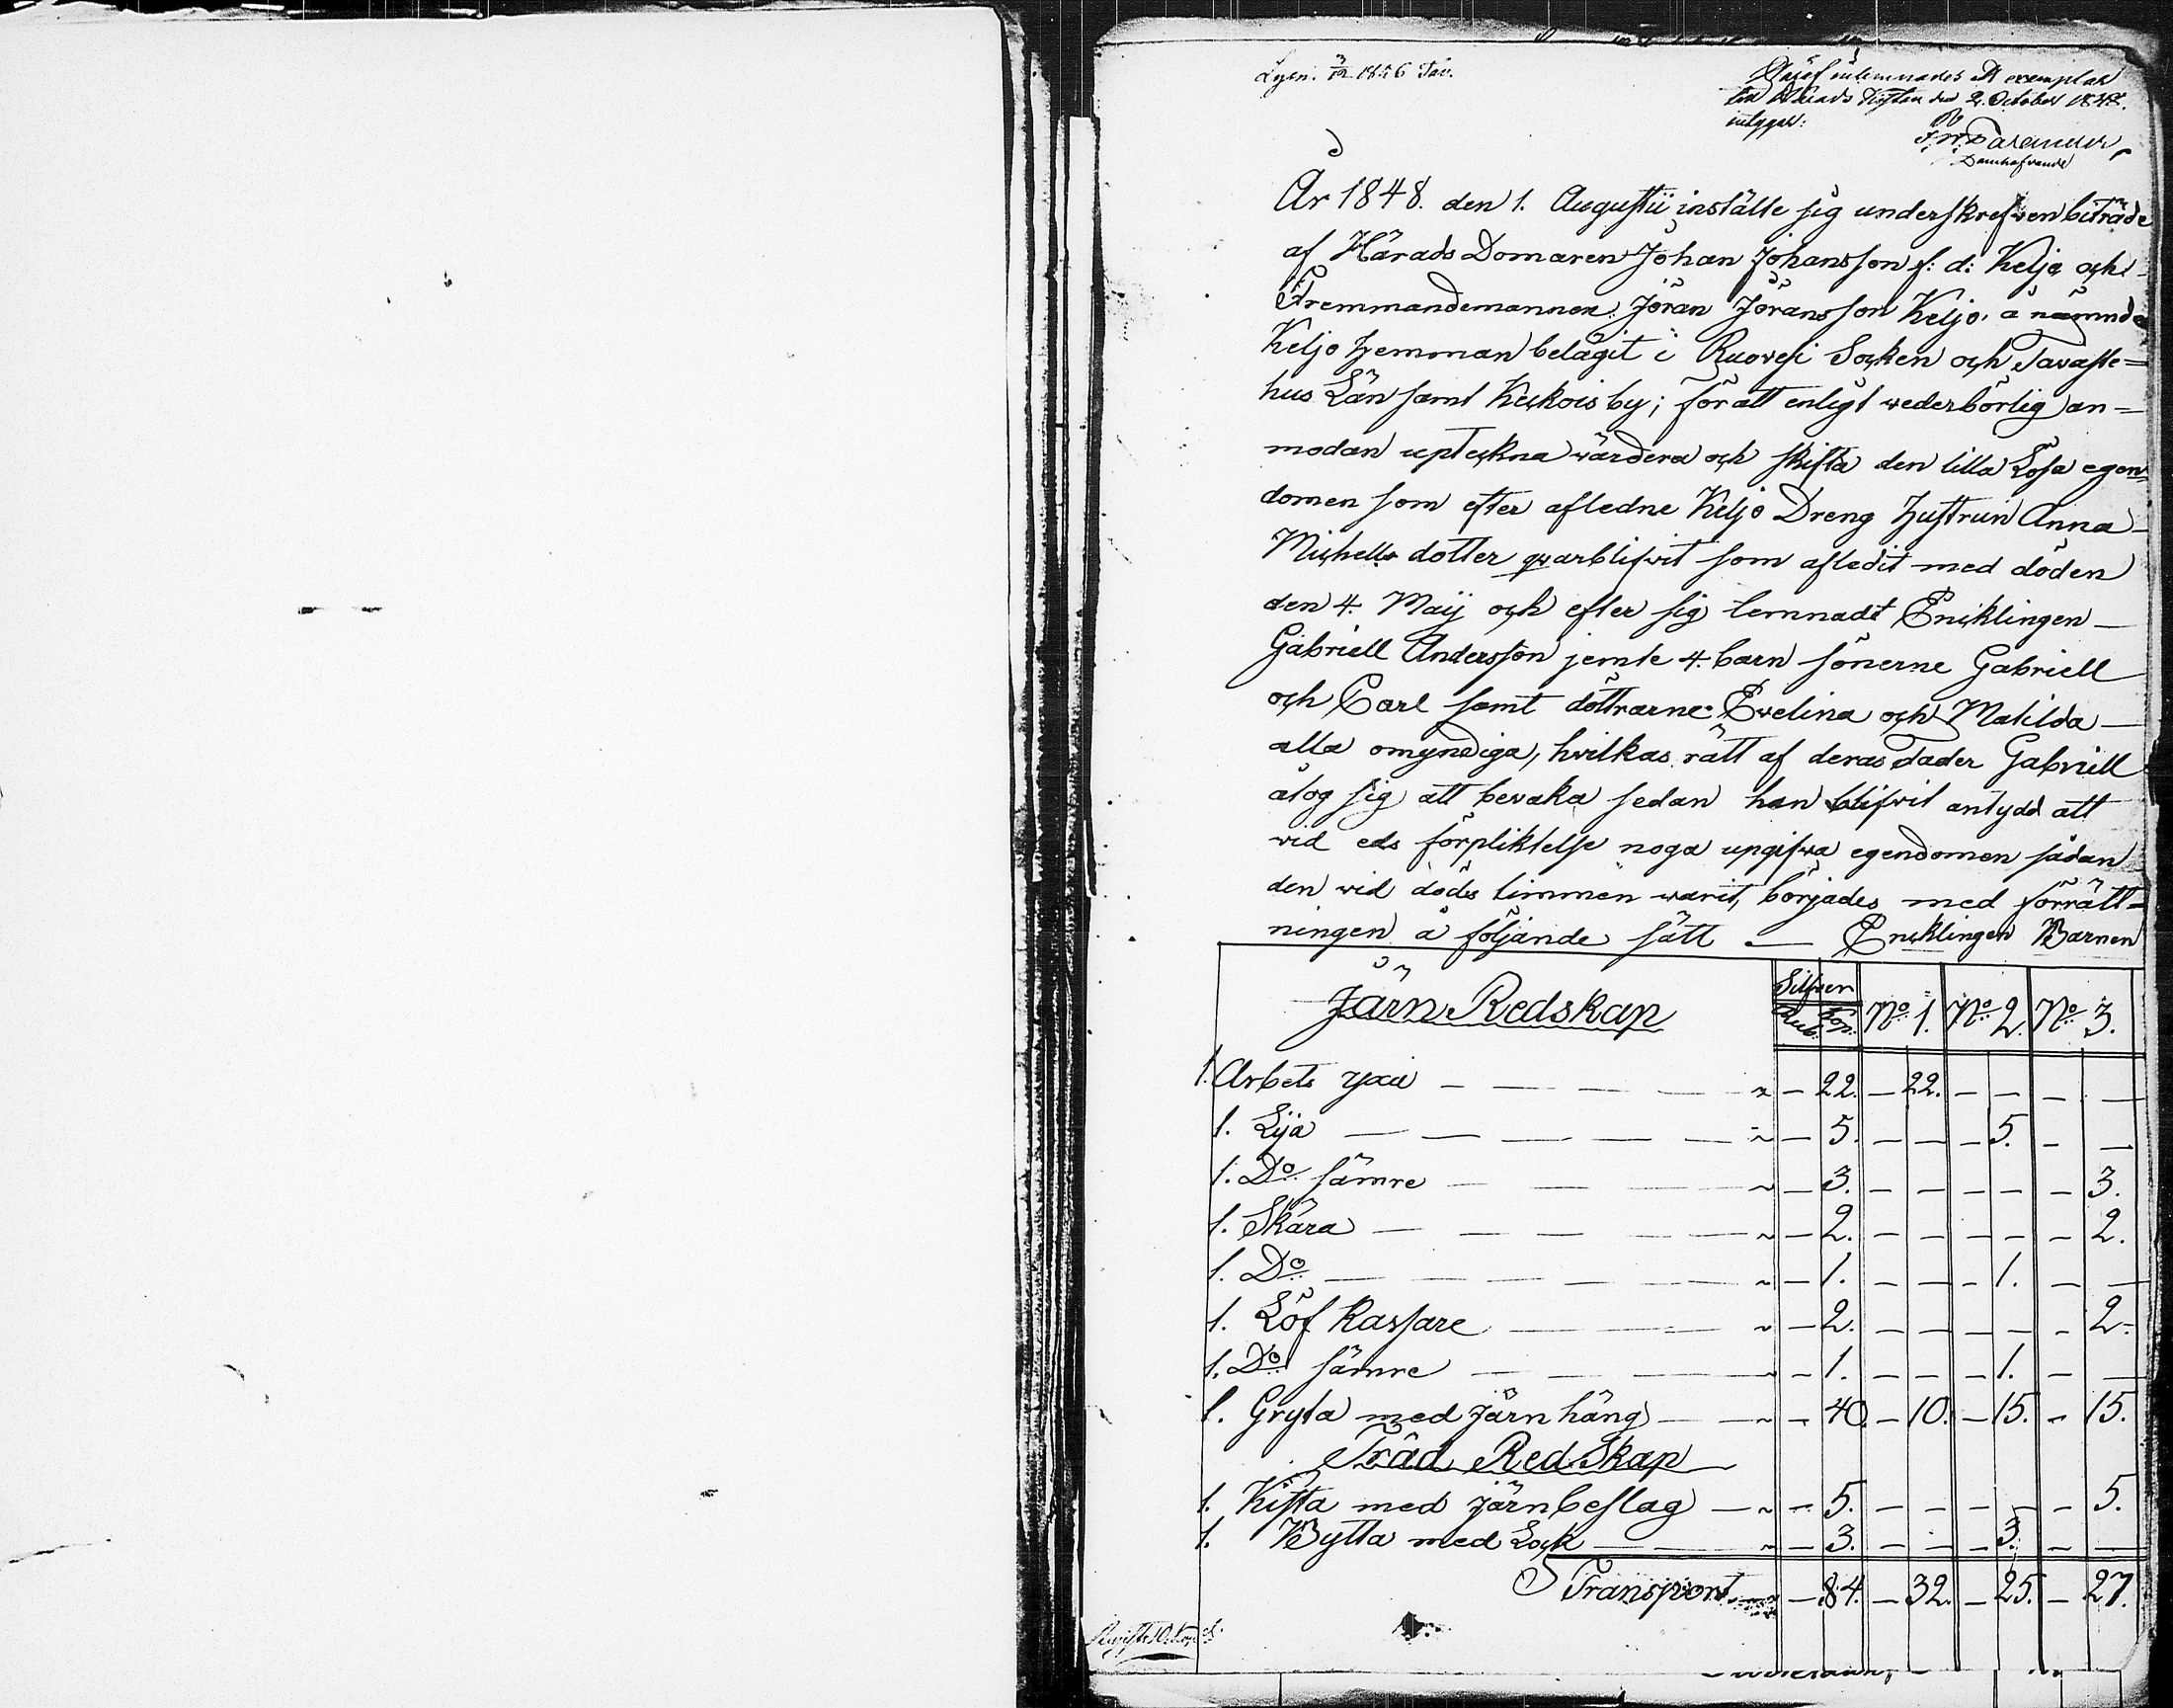 1856 Tav.
exemplar
October 1848.
År 1848. den 1. Augustii instälte sig underskrefwen biträde
af Härads Domaren Johan Johansson f: d: Keljo och
Fremmandemannen Jöran Jöransson Keljo å nämnde
Keljo Hemman belägit i Ruovesi Socken och Tavaste=
hus Län samt Keckois by; för att enligt wederbörlig an=
modan upteckna wärdera och skifta den lilla Lösa egen=
domen som efter afledne Keljo Dreng Hustrun Anna
Michells dotter qwarblifwit som afledit med döden
den 4. Maij och efter sig lemnadt Encklingen
Gabriell Andersson jemte 4. barn sönerne Gabriell
och Carl samt döttrarne Ewelina och Matilda
alla omyndiga, hvilkas rätt af deras Fader Gabriell
åtog sig att bevaka sedan han blifvit antydd att
wid eds förpliktelse noga upgifwa egendomen sådan
den wid döds timmen warit, börjades med förrätt=
ningen å följande sätt — Encklingen Barnen
Järn Redskap Silfwer Rub. Kop: No 1. No 2. No 3.
1. Arbets yxa — — — — ~ — 22. — 22. — — — —
1. Lija — — — — — ~ — 5. — — — 5. — —
1. Do sämre — — — — ~ — 3. — — — — — 3.
1. Skära — — — — — ~ — 2. — — — — — 2.
1. Do — — — — — ~ — 1. — — — 1. — —
1. Löf Rassare — — — ~ — 2. — — — — — 2.
1. Do sämre — — — — ~ — 1. — — — 1. — —
1. Gryta med Järn häng — — ~ — 40. — 10. — 15. — 15.
Träd RedSkap
1. Kista med järnbeslag — ~ — 5. — — — — — 5.
1. Bytta med Lock — — ~ — 3. — — — 3. — —
Transport — 84. — 32. — 25. — 27.